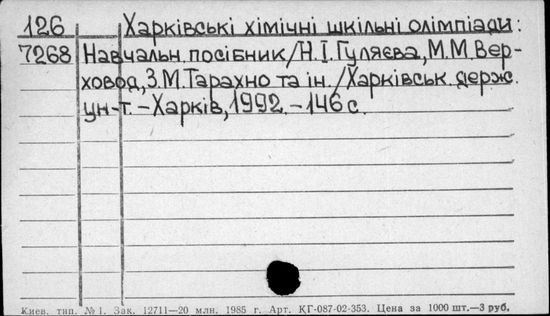 126 Харківські хімічні шкільні олімпіади:
7268 Навчальн. посібник/Н.І.Гуляєва, М.М.Вер-
ховод, З.М.Тарахно та ін./Харківськ. держ.
ун-т.-Харків, 1992.-146 с.
Киев. тип. № 1. Зак. 12711—20 млн. 1985 г. Арт. КГ-087-02-353. Цена за 1000 шт.—3 руб.